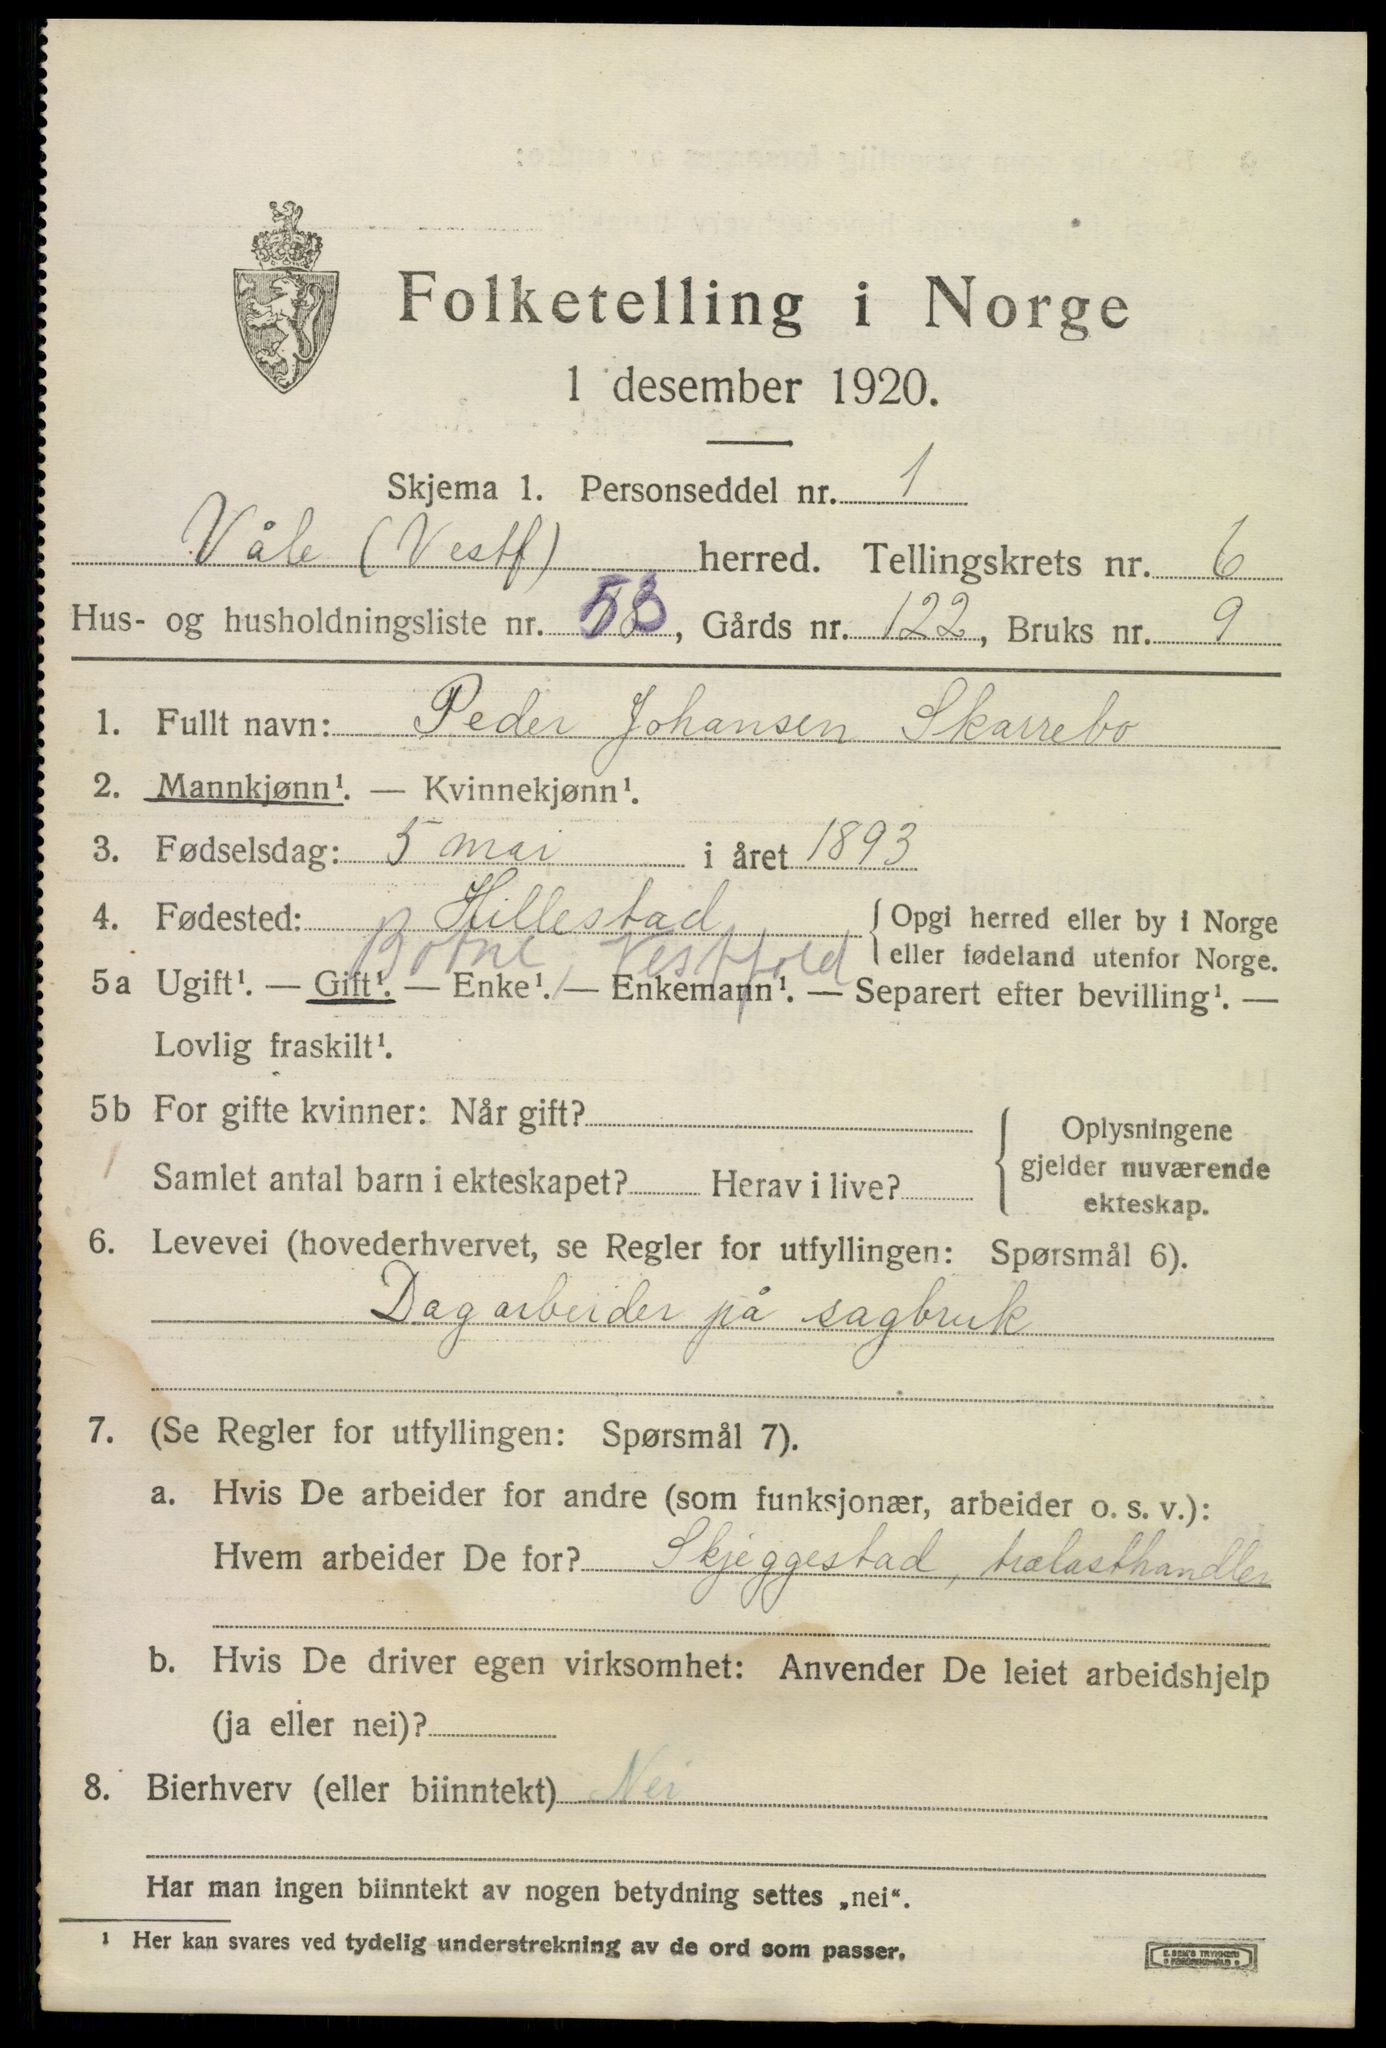 Folketelling i Norge
1 desember 1920.
Skjema 1. Personseddel nr. 1
Våle (Vestf) herred. Tellingskrets nr. 6
Hus- og husholdningsliste nr. 53, Gårds nr. 122, Bruks nr. 9
1. Fullt navn: Peder Johansen Skarrebo
2. Mannkjønn¹. — Kvinnekjønn¹.
3. Fødselsdag: 5 mai i året 1893
4. Fødested: Hillestad { Opgi herred eller by i Norge
Botne, Vestfold eller fødeland utenfor Norge.
5a Ugift¹. — Gift¹. — Enke¹. — Enkemann¹. — Separert efter bevilling¹. —
Lovlig fraskilt¹.
5b For gifte kvinner: Når gift? Oplysningene
Samlet antal barn i ekteskapet? Herav i live? gjelder nuværende
ekteskap.
6. Levevei (hovederhvervet, se Regler for utfyllingen: Spørsmål 6).
Dagarbeider på sagbruk
7. (Se Regler for utfyllingen: Spørsmål 7).
a. Hvis De arbeider for andre (som funksjonær, arbeider o. s. v.):
Hvem arbeider De for? Skjeggestad, trælasthandler
b. Hvis De driver egen virksomhet: Anvender De leiet arbeidshjelp
(ja eller nei)?
8. Bierhverv (eller biinntekt) Nei
Har man ingen biinntekt av nogen betydning settes „nei“.
¹ Her kan svares ved tydelig understrekning av de ord som passer.